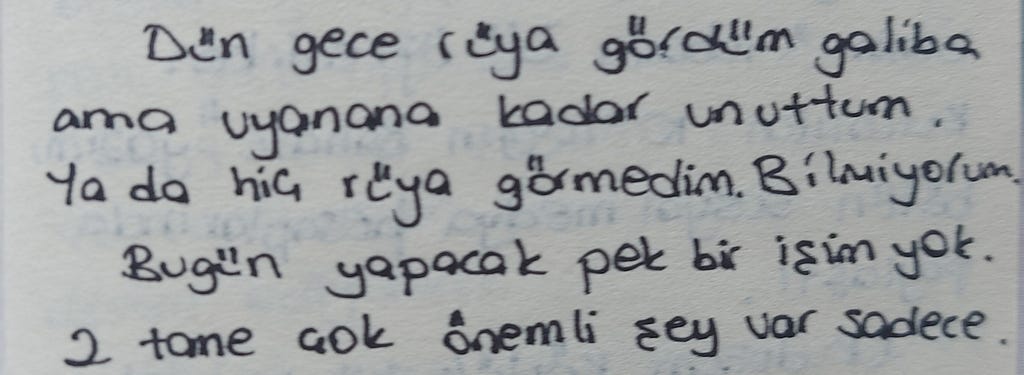 Dün gece rüya gördüm galiba
ama uyanana kadar unuttum.
Ya da hiç rüya görmedim. Bilmiyorum.
Bugün yapacak pek bir işim yok.
2 tane çok önemli şey var sadece.